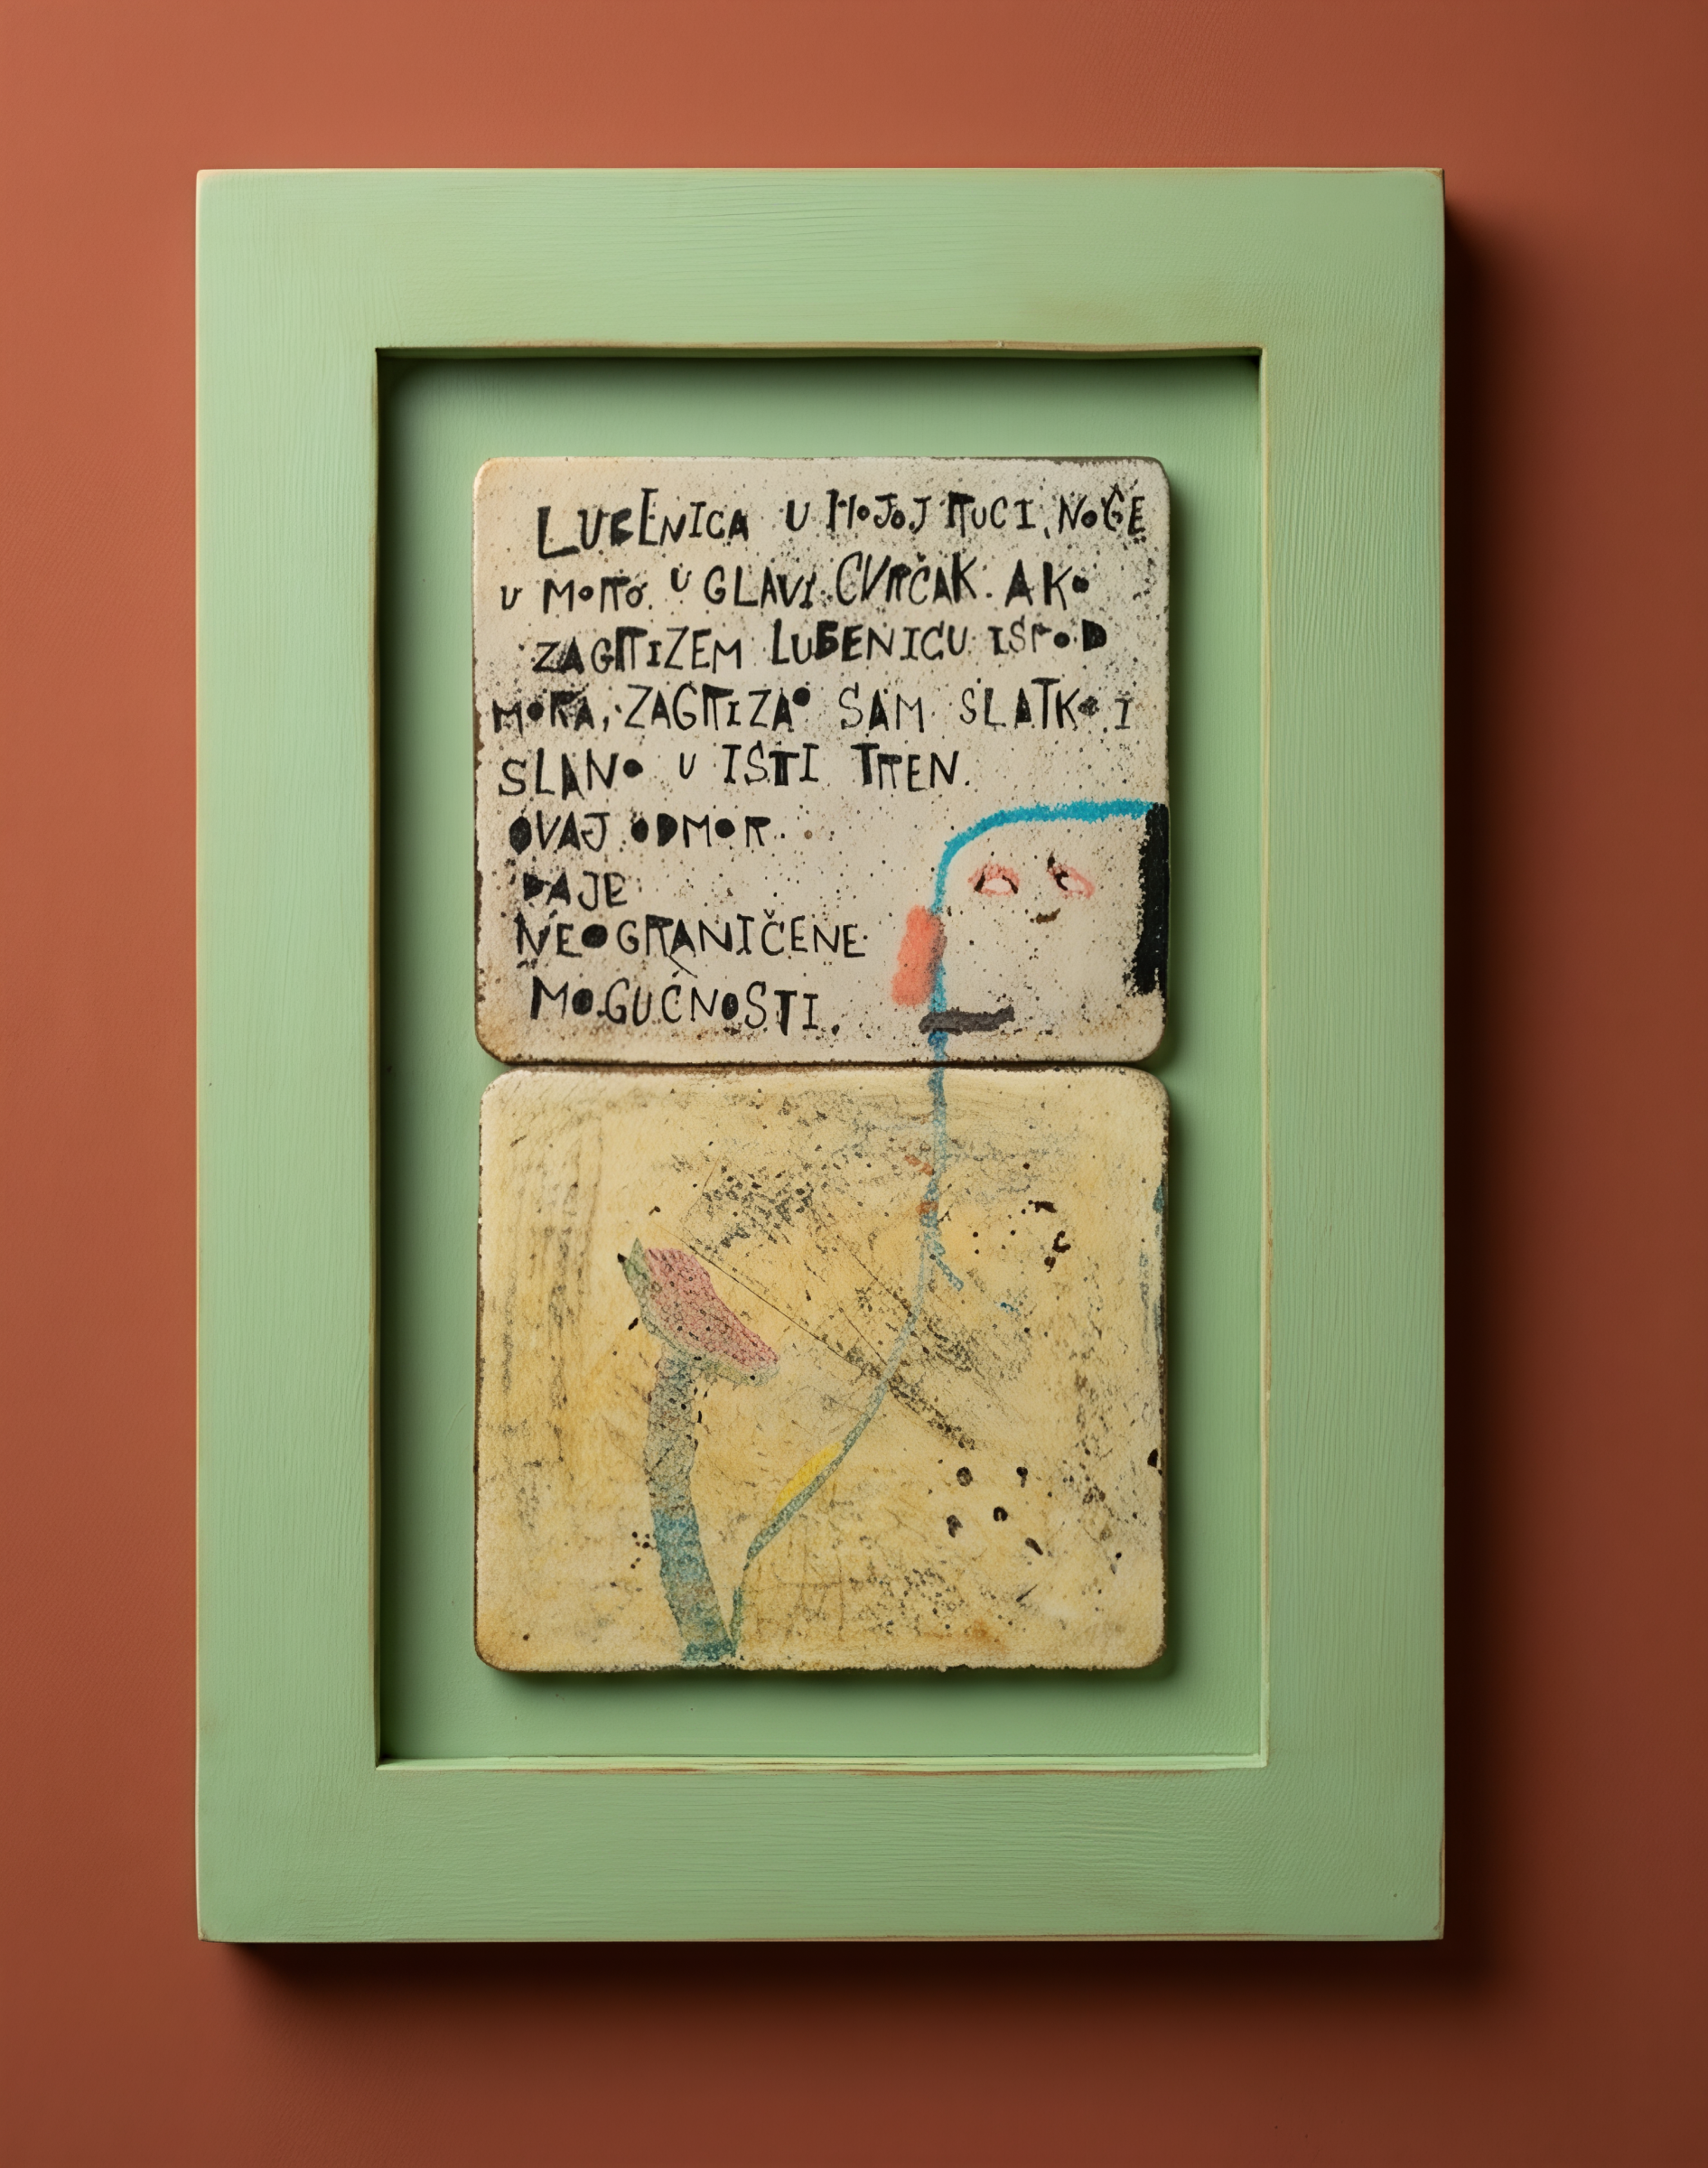 LUBENICA U MOJOJ RUCI, NOGE
U MORU. U GLAVI CVRČAK. AKO
ZAGRIZEM LUBENICU ISPOD
MORA, ZAGRIZAO SAM SLATKO I
SLANO U ISTI TREN.
OVAJ ODMOR
DAJE
NEOGRANIČENE
MOGUĆNOSTI.